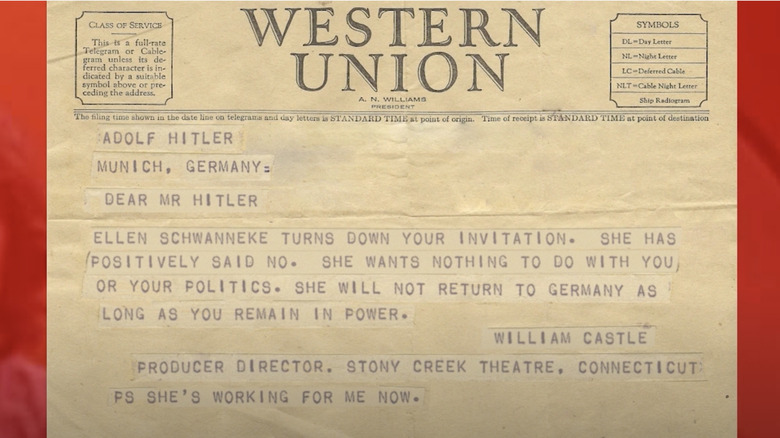 CLASS OF SERVICE
This is a full-rate
Telegram or Cable-
gram unless its de-
ferred character is in-
dicated by a suitable
symbol above or pre-
ceding the address.
WESTERN
UNION
A. N. WILLIAMS
PRESIDENT
SYMBOLS
DL=Day Letter
NL=Night Letter
LC=Deferred Cable
NLT=Cable Night Letter
Ship Radiogram
The filing time shown in the date line on telegrams and day letters is STANDARD TIME at point of origin. Time of receipt is STANDARD TIME at point of destination
ADOLF HITLER
MUNICH, GERMANY=
DEAR MR HITLER
ELLEN SCHWANNEKE TURNS DOWN YOUR INVITATION. SHE HAS
POSITIVELY SAID NO. SHE WANTS NOTHING TO DO WITH YOU
OR YOUR POLITICS. SHE WILL NOT RETURN TO GERMANY AS
LONG AS YOU REMAIN IN POWER.
WILLIAM CASTLE
PRODUCER DIRECTOR. STONY CREEK THEATRE, CONNECTICUT
PS SHE'S WORKING FOR ME NOW.